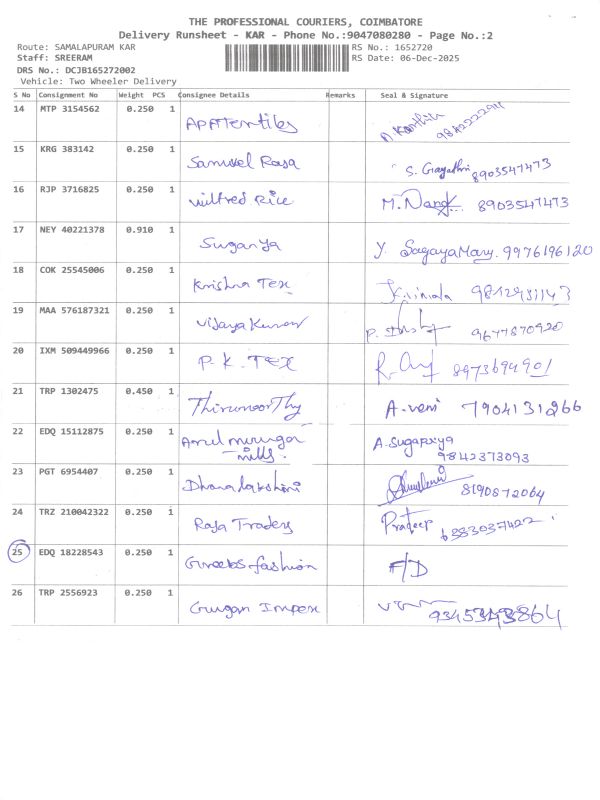 THE PROFESSIONAL COURIERS, COIMBATORE
Delivery Runsheet - KAR - Phone No.:9047080280 - Page No.:2
Route: SAMALAPURAM KAR RS No.: 1652720
Staff: SREERAM RS Date: 06-Dec-2025
DRS No.: DCJB165272002
Vehicle: Two Wheeler Delivery
S No Consignment No Weight PCS Consignee Details Remarks Seal & Signature
14 MTP 3154562 0.250 1
15 KRG 383142 0.250 1 Samuvel Rasa S. Gayathri 8903547473
16 RJP 3716825 0.250 1 wilfred Rice M. 8903547473
17 NEY 40221378 0.910 1 Suganya Y. SagayaMary. 9976196120
18 COK 25545006 0.250 1 Krishna Tex
19 MAA 576187321 0.250 1 Vijaya Kumar P. 9677870920
20 IXM 509449966 0.250 1 P. K. TEX R. 8973694901
21 TRP 1302475 0.450 1 Thirumoorthy A. veni 7904131266
22 EDQ 15112875 0.250 1 Arulmurugan A. Sugapriya
mills. 9842373093
23 PGT 6954407 0.250 1 Dhanalakshmi 8190872064
24 TRZ 210042322 0.250 1 Raja Traders Pradeep 6383037422
25 EDQ 18228543 0.250 1 fashion F/D
26 TRP 2556923 0.250 1 Gugan Impex